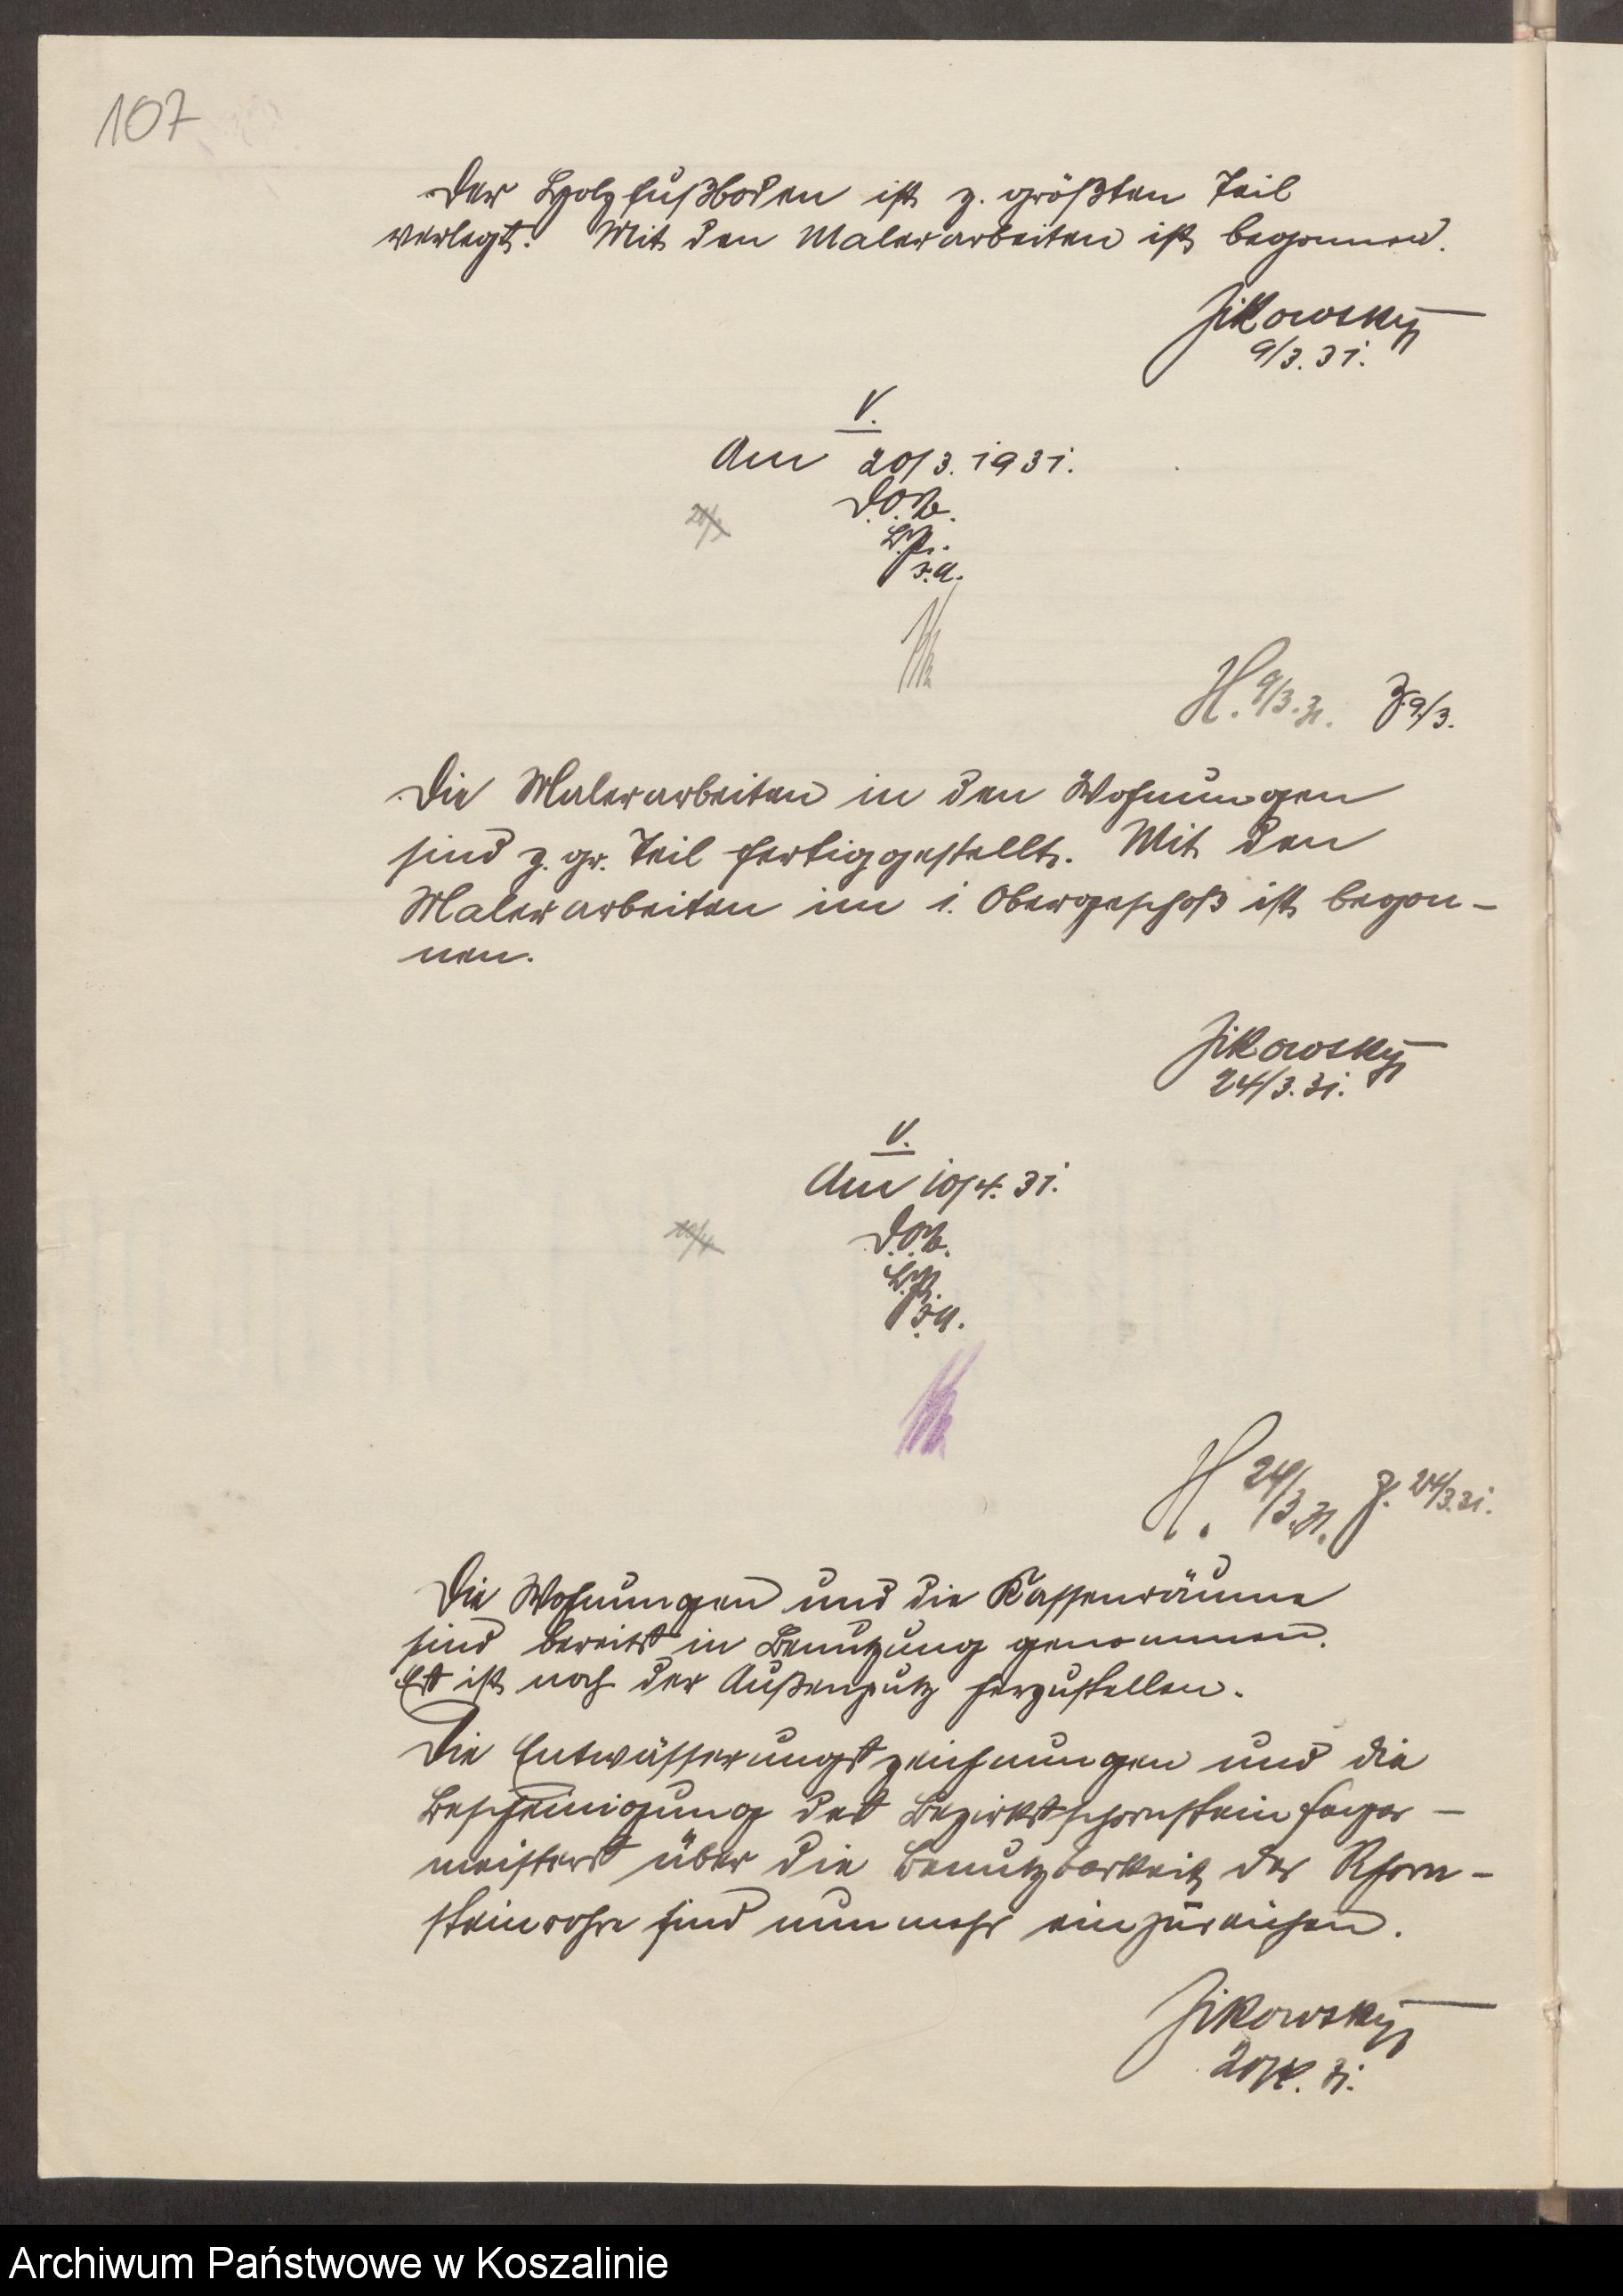 107
Der Holzfußboden ist z. größten Teil
verlegt. Mit den Malerarbeiten ist begonnen.
Zikowsky
9/3. 31.
V.
Am 20/3. 1931.
D.O.B.
B.P.
I.A.
H. 9/3. 31. Z 9/3.
Die Malerarbeiten in den Wohnungen
sind z. gr. Teil fertiggestellt. Mit den
Malerarbeiten im 1. Obergeschoß ist begon-
nen.
Zikowsky
24/3. 31.
V.
Am 10/4. 31.
10/4
D.O.B.
B.P.
I.A.
H. 24/3. 31. Z. 24/3. 31.
Die Wohnungen und die Kassenräume
sind bereits in Benutzung genommen.
Es ist noch der Außenputz herzustellen.
Die Entwässerungszeichnungen und die
Bescheinigung des Bezirksschornsteinfeger-
meisters über die Benutzbarkeit der Schorn-
steinrohre sind nunmehr einzureichen.
Zikowsky
20/4. 31.
Archiwum Państwowe w Koszalinie